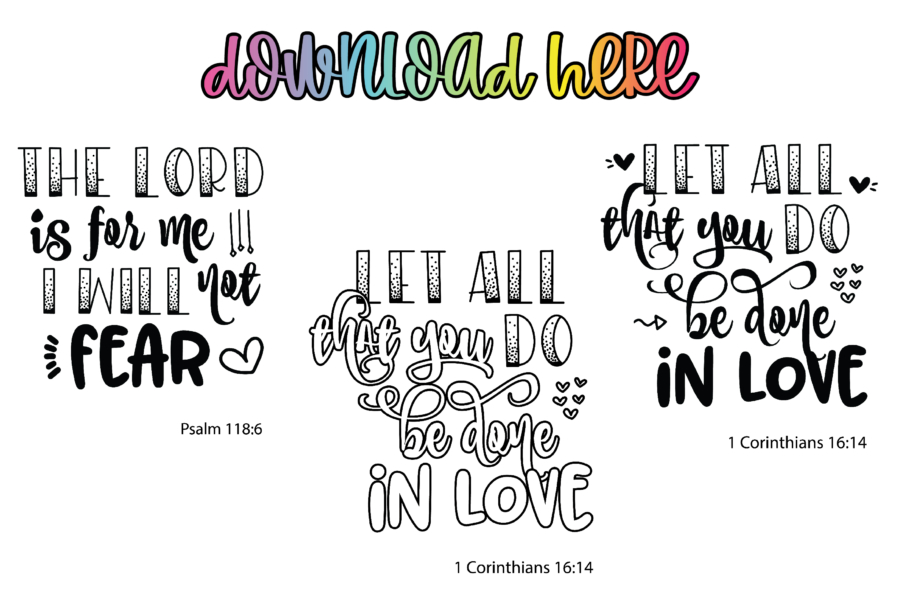 download here
THE LORD
is for me !!!
I WILL not
FEAR
Psalm 118:6
LET ALL
that you DO
be done
iN LOVE
1 Corinthians 16:14
LET ALL
that you DO
be done
iN LOVE
1 Corinthians 16:14